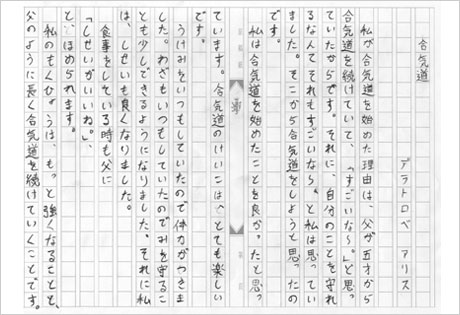 合気道
デラトロペ アリス
私が合気道を始めた理由は、父が五才から
合気道を続けていて、「すごいなあ。」と思っ
ていたからです。それに、自分のことを守れ
るなんてそれもすごいなあと私は思ってい
ました。そこから合気道をしようと思ったの
です。
私は合気道を始めたことを良かったと思っ
ています。合気道のけいこは、とても楽しい
です。
うけみをいつもしていたので体力がつきま
した。わざもいつもしていたのでみを守るこ
とも少しできるようになりました。それに私
は、しせいも良くなりました。
食事をしている時も父に
「しせいがいいね。」
と、ほめられます。
私のもくひょうは、もっと強くなることと、
父のように長く合気道を続けていくことです。